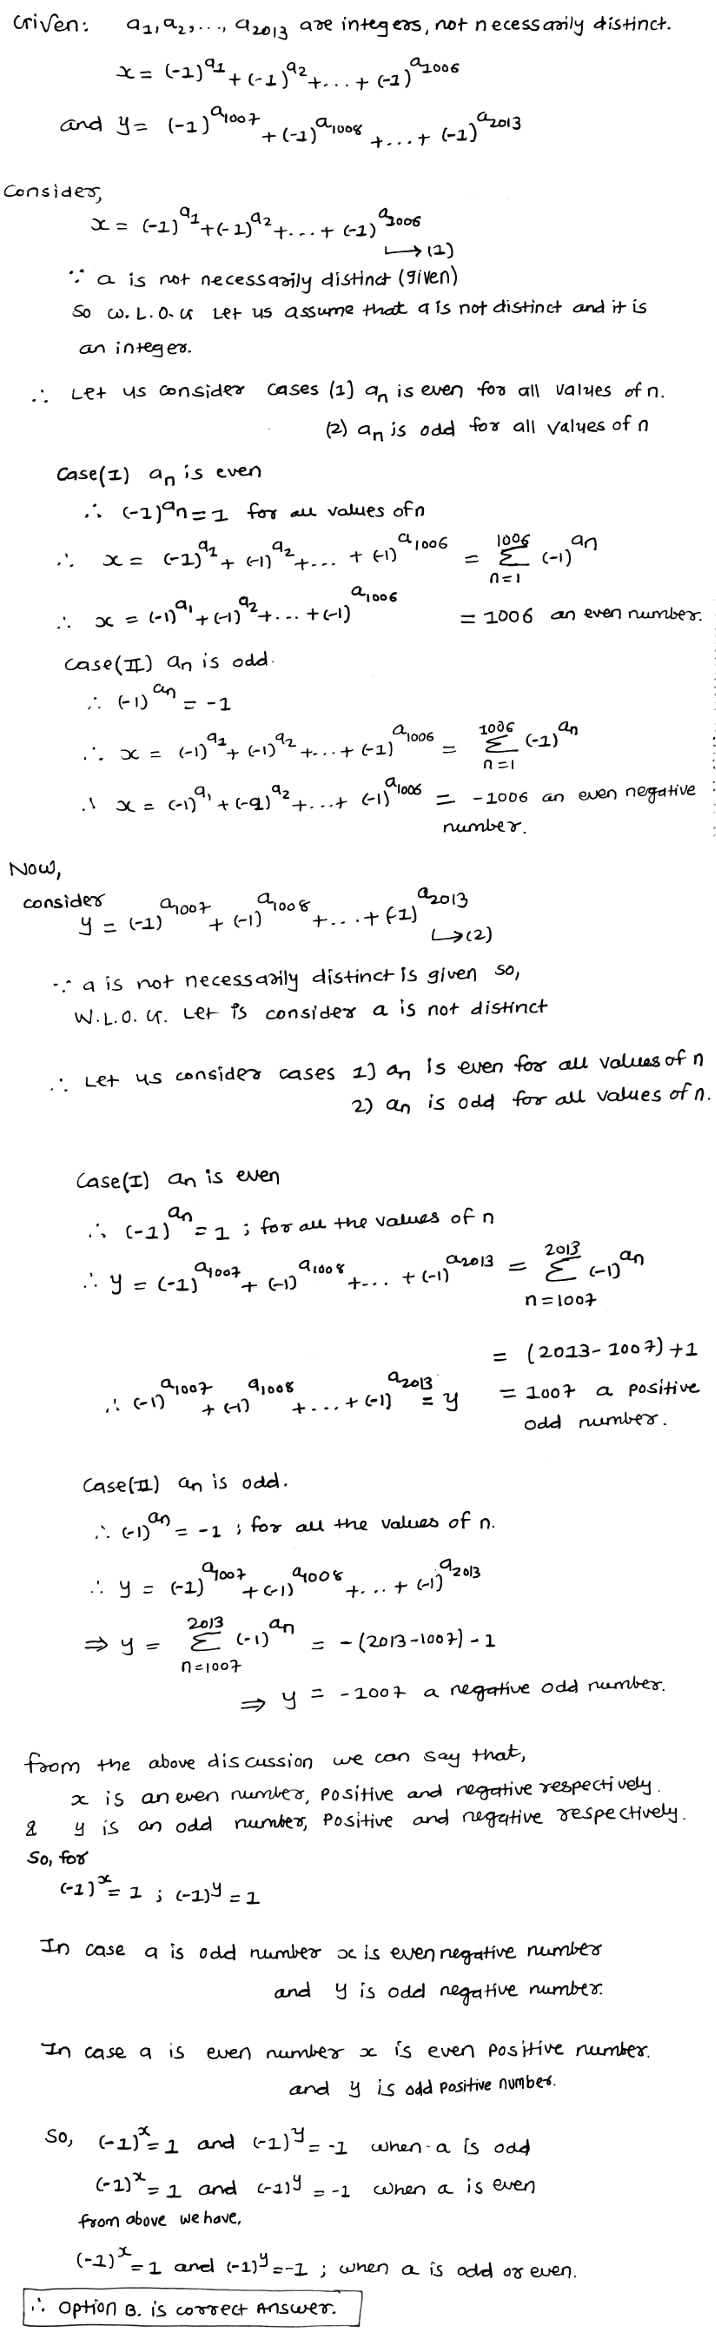 Given: a₁, a₂, ..., a₂₀₁₃ are integers, not necessarily distinct.
x = (-1)^a₁ + (-1)^a₂ + ... + (-1)^a₁₀₀₆
and y = (-1)^a₁₀₀₇ + (-1)^a₁₀₀₈ + ... + (-1)^a₂₀₁₃
Consider,
x = (-1)^a₁ + (-1)^a₂ + ... + (-1)^a₁₀₀₆
↳(1)
∵ a is not necessarily distinct (given)
So W.L.O.G Let us assume that a is not distinct and it is
an integer.
∴ Let us consider cases (1) aₙ is even for all values of n.
(2) aₙ is odd for all values of n
Case(I) aₙ is even
∴ (-1)^aₙ = 1 for all values of n
∴ x = (-1)^a₁ + (-1)^a₂ + ... + (-1)^a₁₀₀₆ = Σ_{n=1}^{1006} (-1)^aₙ
∴ x = (-1)^a₁ + (-1)^a₂ + ... + (-1)^a₁₀₀₆ = 1006 an even number.
Case(II) aₙ is odd.
∴ (-1)^aₙ = -1
∴ x = (-1)^a₁ + (-1)^a₂ + ... + (-1)^a₁₀₀₆ = Σ_{n=1}^{1006} (-1)^aₙ
∴ x = (-1)^a₁ + (-1)^a₂ + ... + (-1)^a₁₀₀₆ = -1006 an even negative
number.
Now,
consider
y = (-1)^a₁₀₀₇ + (-1)^a₁₀₀₈ + ... + (-1)^a₂₀₁₃
↳(2)
∵ a is not necessarily distinct is given so,
W.L.O.G. Let is consider a is not distinct
∴ Let us consider cases 1) aₙ is even for all values of n
2) aₙ is odd for all values of n.
Case(I) aₙ is even
∴ (-1)^aₙ = 1 ; for all the values of n
∴ y = (-1)^a₁₀₀₇ + (-1)^a₁₀₀₈ + ... + (-1)^a₂₀₁₃ = Σ_{n=1007}^{2013} (-1)^aₙ
= (2013-1007)+1
∴ (-1)^a₁₀₀₇ + (-1)^a₁₀₀₈ + ... + (-1)^a₂₀₁₃ = y = 1007 a positive
odd number.
Case(II) aₙ is odd.
∴ (-1)^aₙ = -1 ; for all the values of n.
∴ y = (-1)^a₁₀₀₇ + (-1)^a₁₀₀₈ + ... + (-1)^a₂₀₁₃
⇒ y = Σ_{n=1007}^{2013} (-1)^aₙ = -(2013-1007)-1
⇒ y = -1007 a negative odd number.
from the above discussion we can say that,
x is an even number, positive and negative respectively.
& y is an odd number, Positive and negative respectively.
So, for
(-1)^x = 1 ; (-1)^y = 1
In case a is odd number x is even negative number
and y is odd negative number.
In case a is even number x is even positive number.
and y is odd positive number.
So, (-1)^x = 1 and (-1)^y = -1 when a is odd
(-1)^x = 1 and (-1)^y = -1 when a is even
from above we have,
(-1)^x = 1 and (-1)^y = -1 ; when a is odd or even.
∴ Option B. is correct Answer.